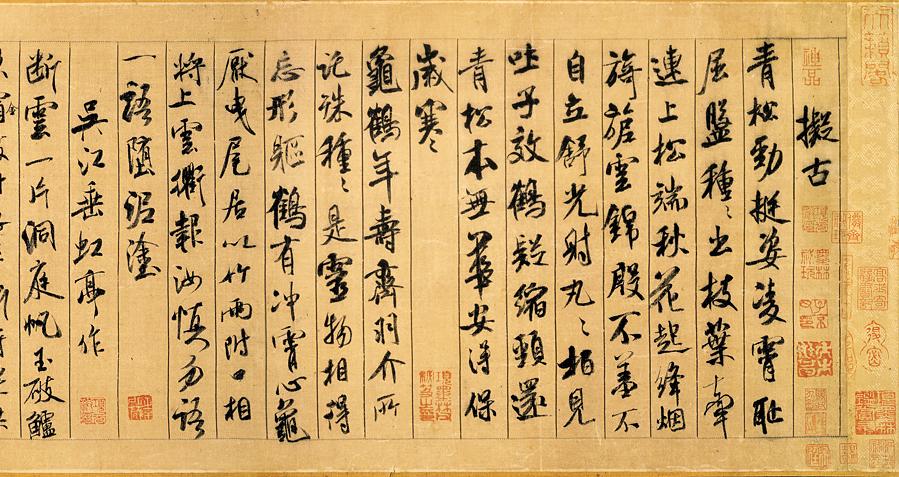 擬古
青松勁挺姿凌霄耻
屈盤種〻出枝葉牽
連上松端秋花起絳烟
旖旎雲錦殷不羞不
自立舒光射丸〻柏見
吐子效鶴疑縮頸還
青松本無華安得保
歲寒〻
龜鶴年壽齊羽介所
託殊種〻是靈物相得
忘形軀鶴有冲霄心龜
厭曳尾居以竹兩附口相
將上雲衢報汝慎勿語
一語墮泥塗
吳江垂虹亭作
断雲一片洞庭帆玉破鱸